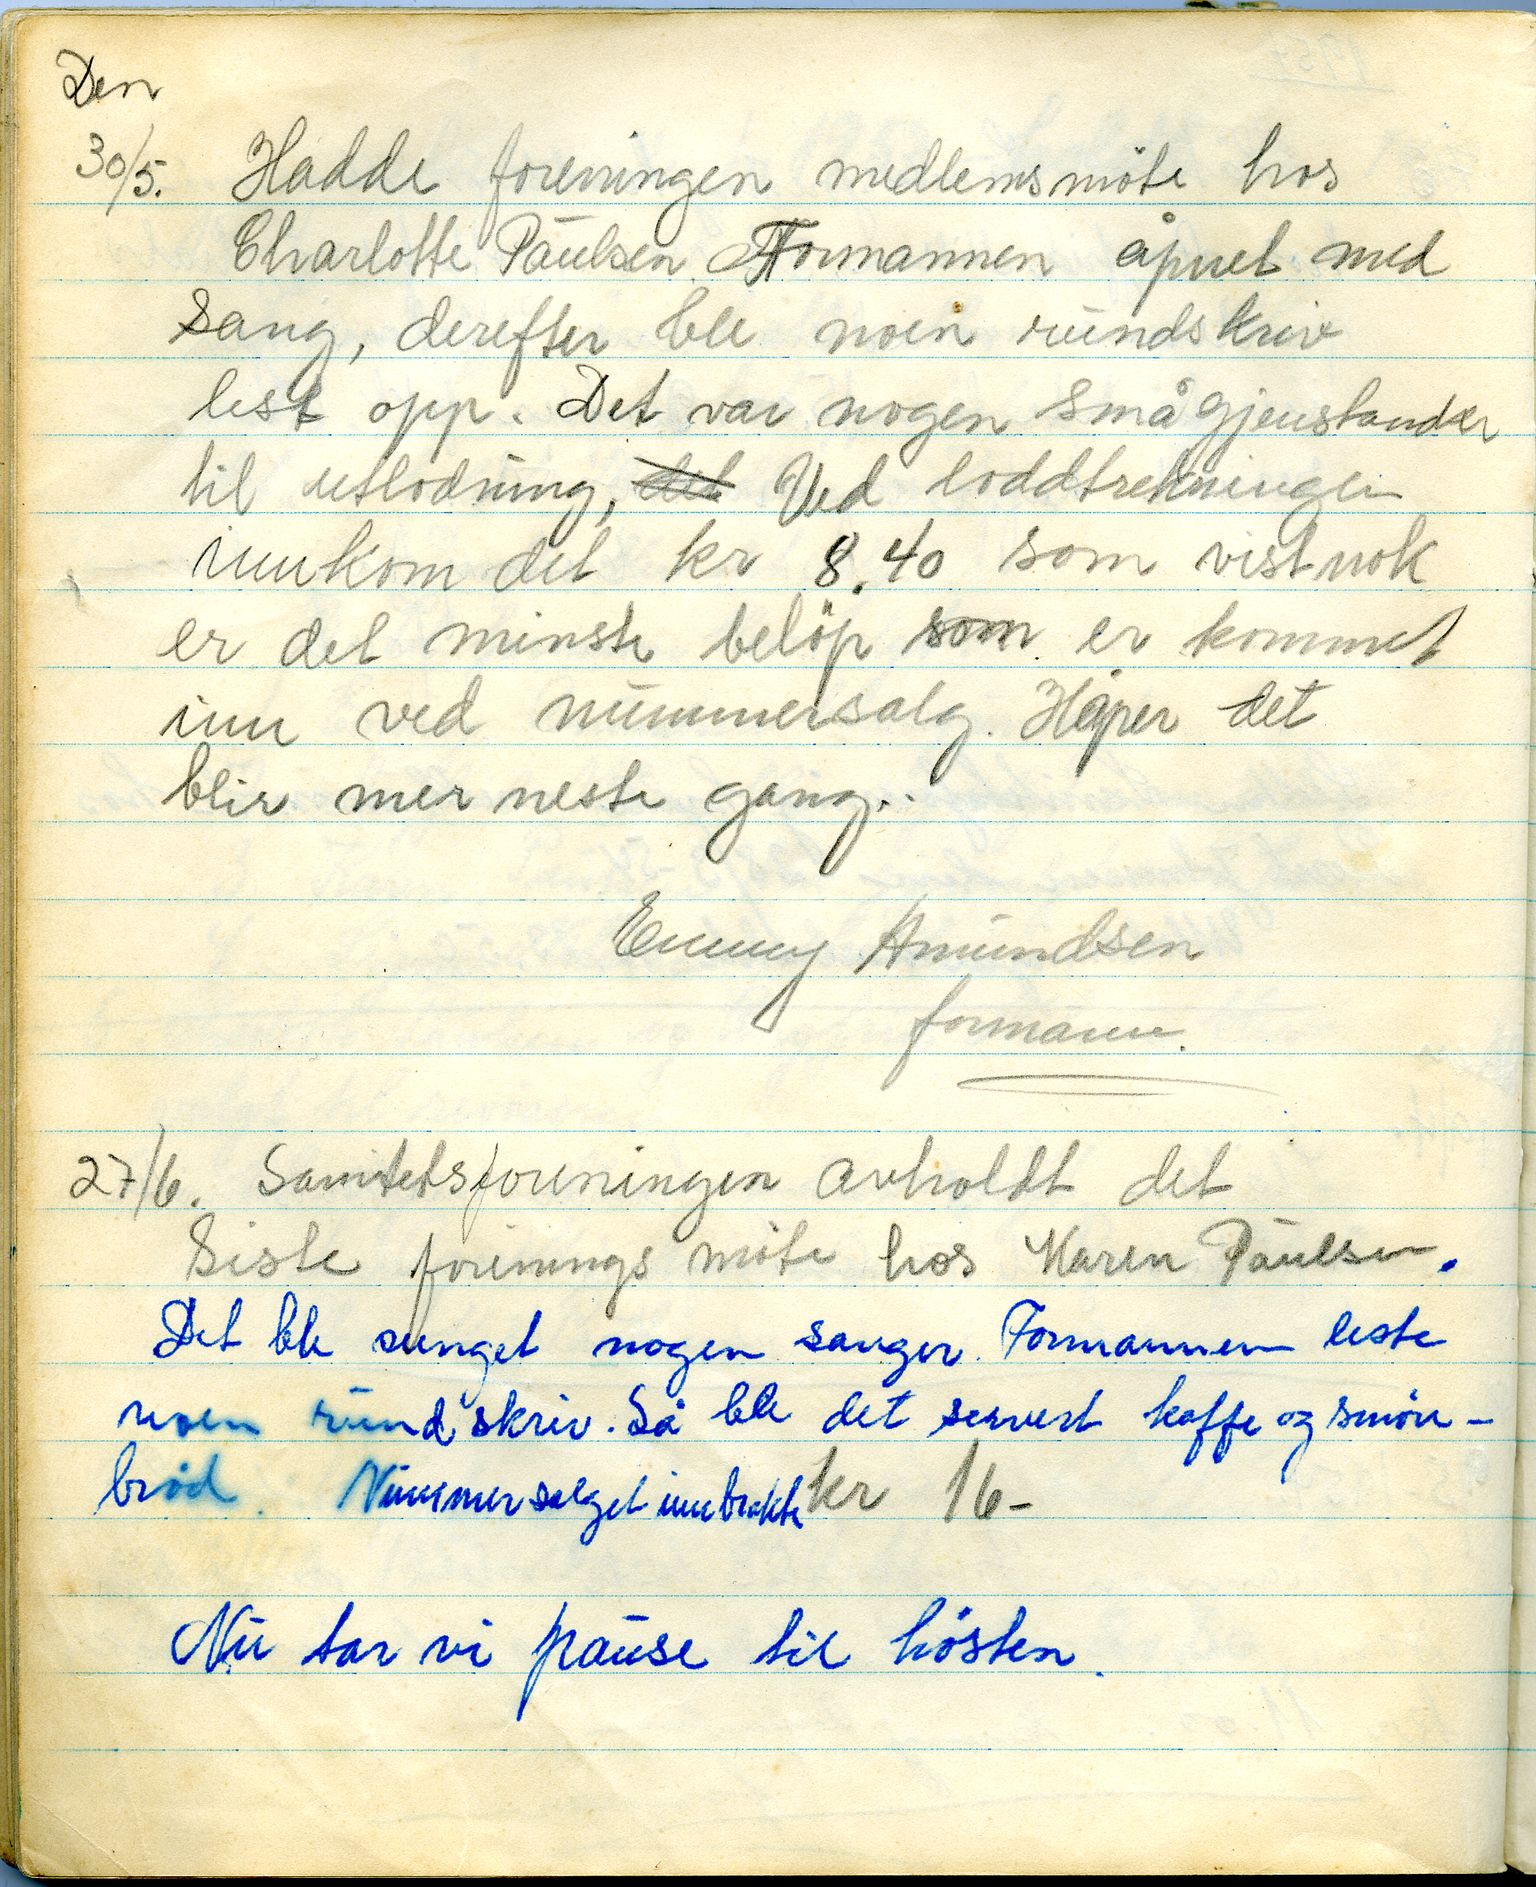 Den
30/5. Hadde foreningen medlemsmöte hos
Charlotte Paulsen. Formannen åpnet med
Sang, derefter ble noen rundskriv
lest opp. Det var nogen små gjenstander
til utlodning, det Ved loddtrekningen
innkom det kr 8.40 som vistnok
er det minste belöp som er kommet
inn ved nummersalg. Håper det
blir mer neste gang..
Emmy Amundsen
formann.
27/6. Sanitetsforeningen avholdt det
siste forenings möte hos Karen Paulsen.
Det ble sunget nogen sanger. Formannen leste
noen rundskriv. Så ble det servert kaffe og smörr-
bröd. Nummersalget innbrakte kr 16-
Nu tar vi pause til hösten.